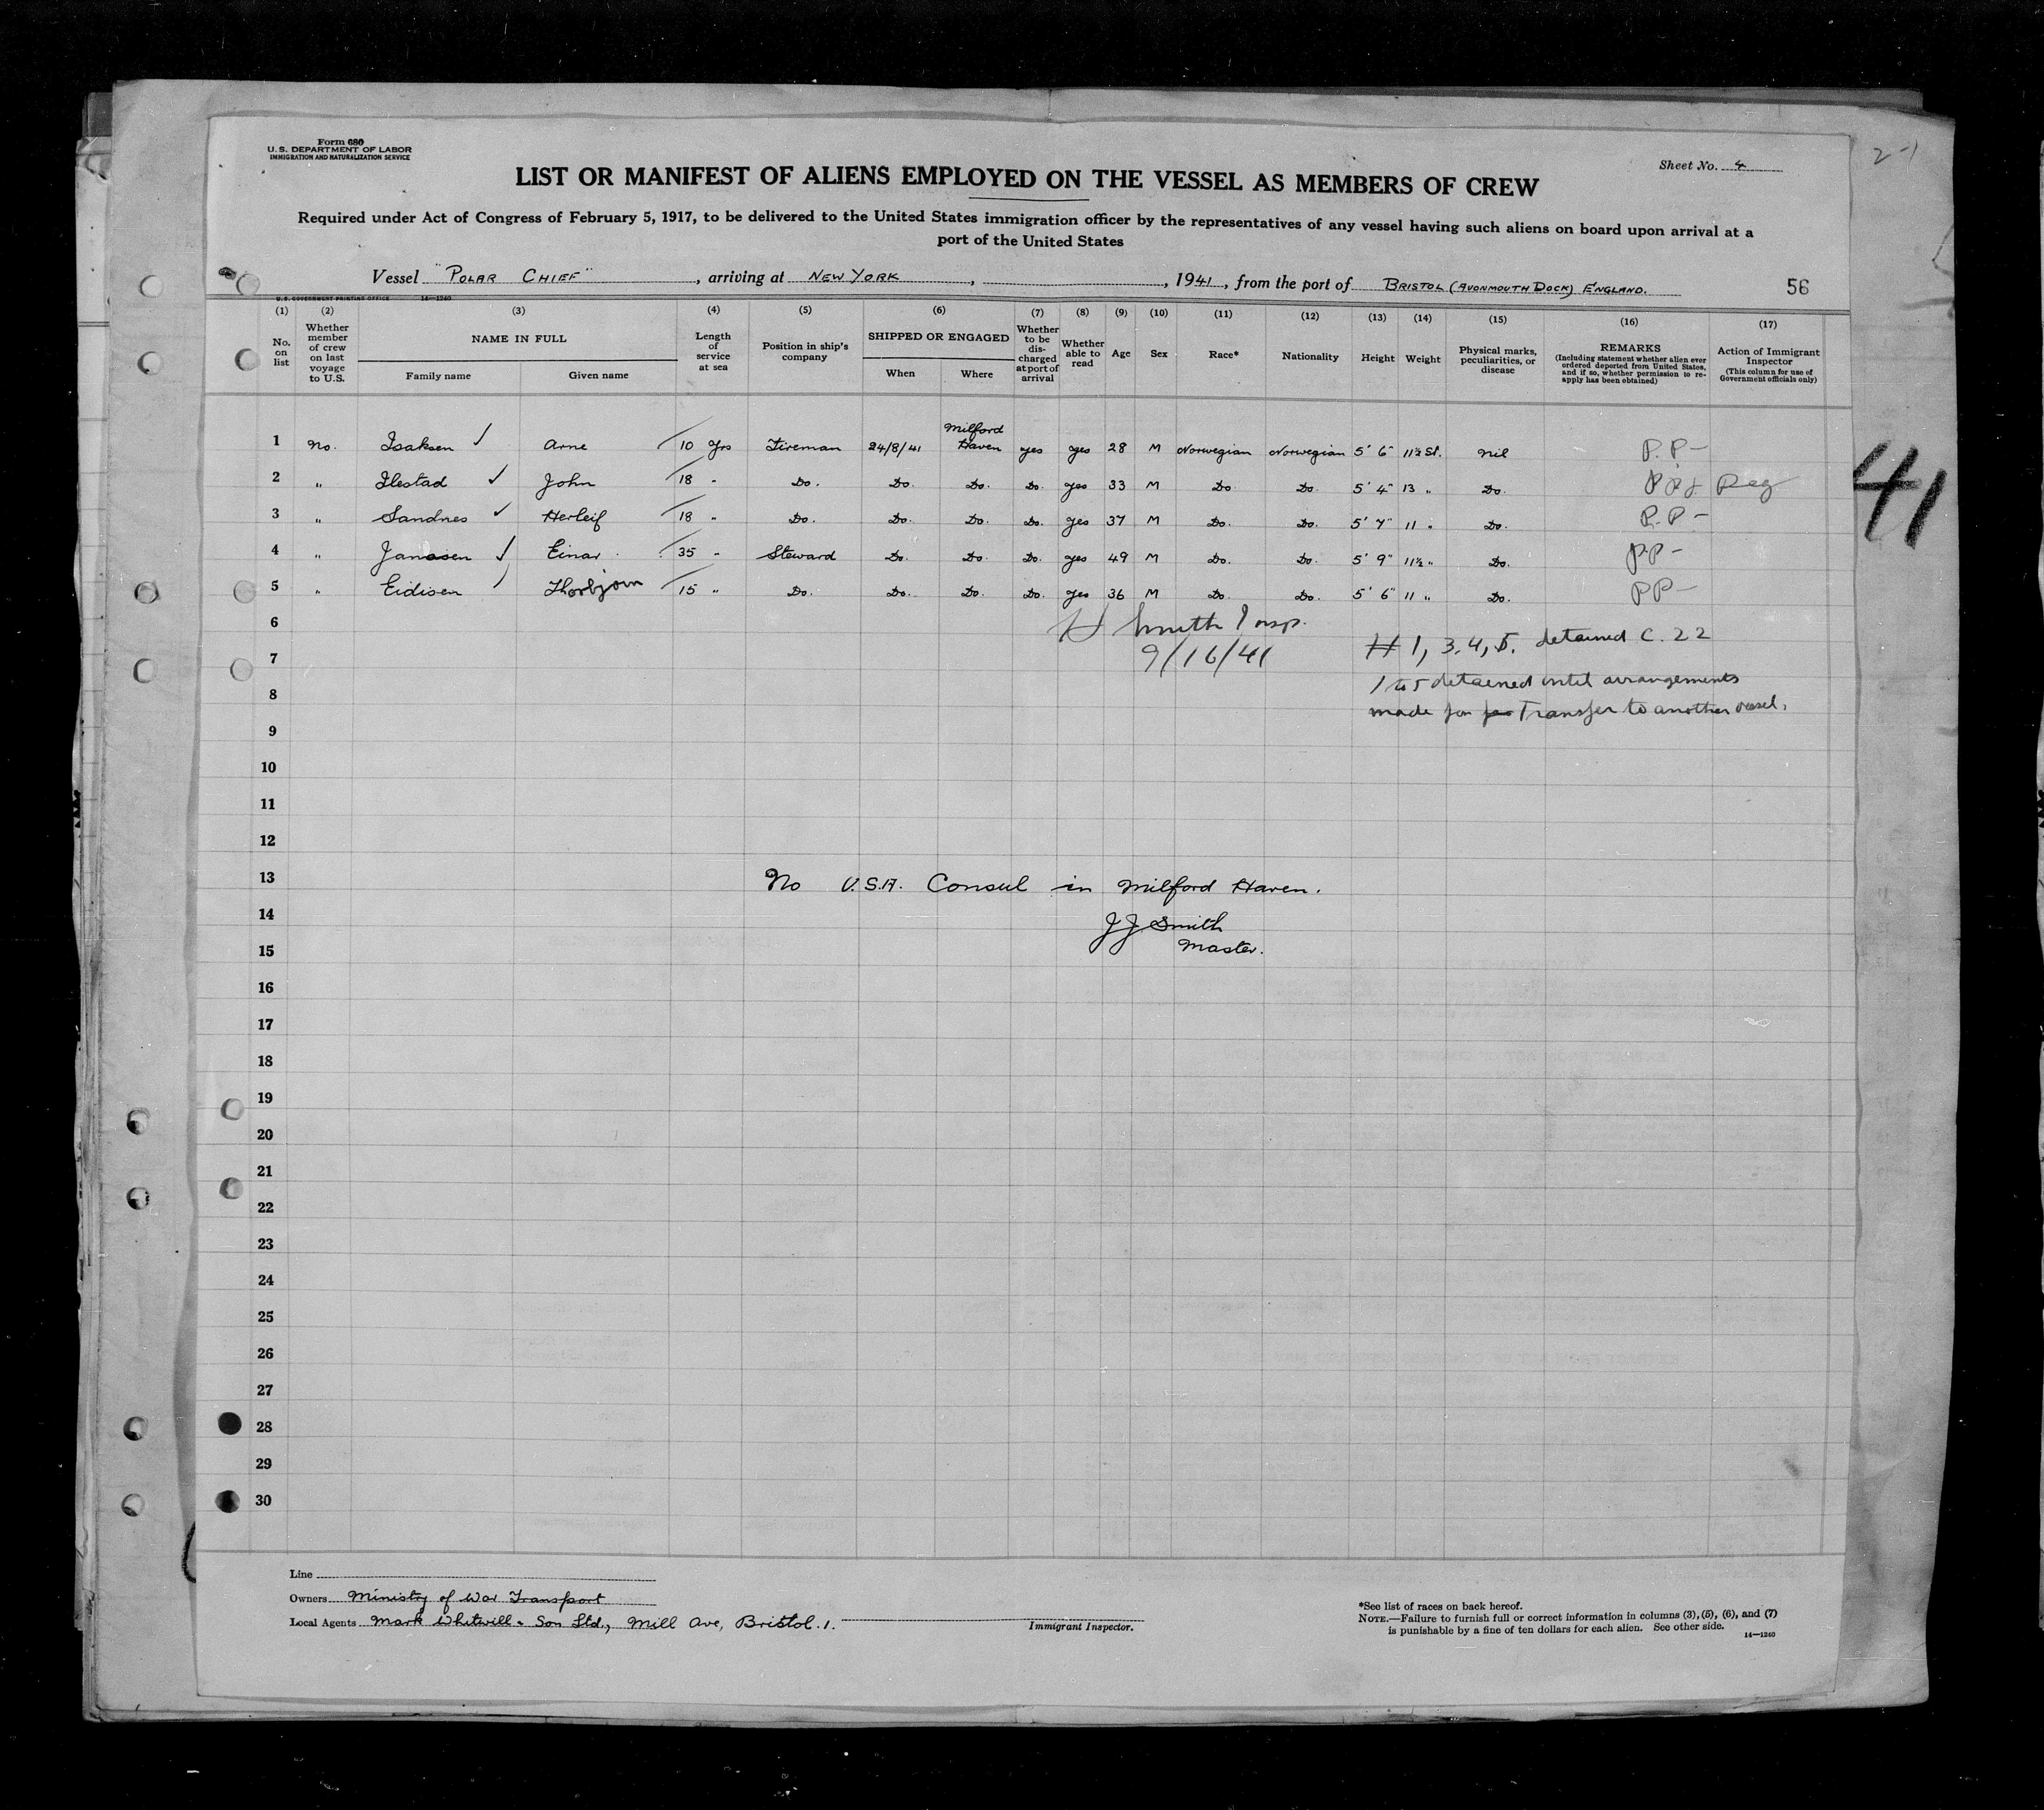 Form 680
U.S. DEPARTMENT OF LABOR
IMMIGRATION AND NATURALIZATION SERVICE
Sheet No. 4
2-1
LIST OR MANIFEST OF ALIENS EMPLOYED ON THE VESSEL AS MEMBERS OF CREW
Required under Act of Congress of February 5, 1917, to be delivered to the United States immigration officer by the representatives of any vessel having such aliens on board upon arrival at a
port of the United States
Vessel "POLAR CHIEF", arriving at NEW YORK, , 1941, from the port of BRISTOL (AVONMOUTH DOCK) ENGLAND.
56
U.S. GOVERNMENT PRINTING OFFICE 14—1240
(1) No. on list
(2) Whether member of crew on last voyage to U.S.
(3) NAME IN FULL Family name Given name
(4) Length of service at sea
(5) Position in ship's company
(6) SHIPPED OR ENGAGED When Where
(7) Whether to be dis-charged at port of arrival
(8) Whether able to read
(9) Age
(10) Sex
(11) Race*
(12) Nationality
(13) Height
(14) Weight
(15) Physical marks, peculiarities, or disease
(16) REMARKS (Including statement whether alien ever ordered deported from United States, and if so, whether permission to re-apply has been obtained)
(17) Action of Immigrant Inspector (This column for use of Government officials only)
1 No. Isaksen ✓ Arne 10 Yrs Fireman 24/8/41 Milford Haven yes yes 28 M Norwegian Norwegian 5' 6" 11½ St. Nil P.P –
2 " Ilestad ✓ John 18 " Do. Do. Do. Do. yes 33 M Do. Do. 5' 4" 13 " Do. Reg
3 " Sandnes ✓ Herleif 18 " Do. Do. Do. Do. yes 37 M Do. Do. 5' 7" 11 " Do. P.P –
4 " Janasen ✓ Einar 35 " Steward Do. Do. Do. yes 49 M Do. Do. 5' 9" 11½ " Do. PP –
5 " Eidisen ✓ Thorbjorn 15 " Do. Do. Do. Do. yes 36 M Do. Do. 5' 6" 11 " Do. PP –
41
6
H Smith Insp.
7
9/16/41
# 1, 3, 4, 5. detained C. 22
8
1 to 5 detained until arrangements
made for Transfer to another vessel.
9
10
11
12
13 No U.S.A. Consul in Milford Haven.
14 J J Smith
15 Master.
16
17
18
19
20
21
22
23
24
25
26
27
28
29
30
Line
Owners Ministry of War Transport
Local Agents Mark Whitwill & Son Ltd., Mill Ave, Bristol. 1.
Immigrant Inspector.
*See list of races on back hereof.
NOTE.—Failure to furnish full or correct information in columns (3), (5), (6), and (7)
is punishable by a fine of ten dollars for each alien. See other side.
14—1240